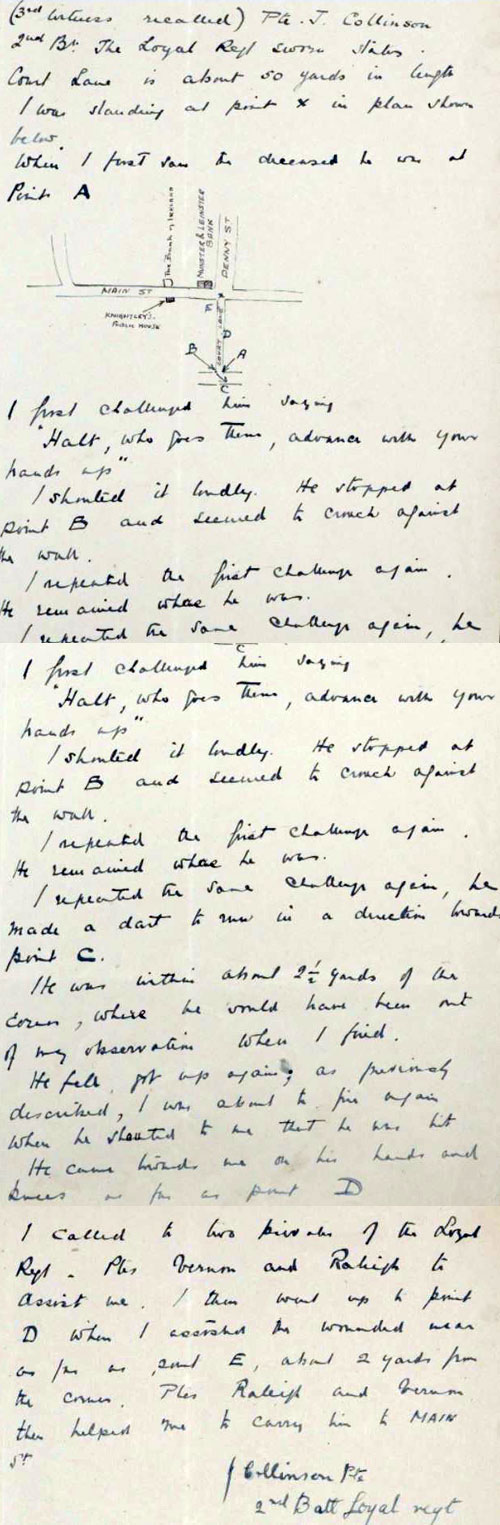 (3rd Witness recalled) Pte. J. Collinson
2nd Bn The Loyal Regt sworn states.
Court Lane is about 50 yards in length
I was standing at point X in plan shown
below.
When I first saw the deceased he was at
Point A
The Bank of Ireland
MUNSTER & LEINSTER
BANK
PENNY ST
MAIN ST
KNIGHTLEY'S
PUBLIC HOUSE
E
COURT LANE
D
B
A
C
I first challenged him saying
"Halt, who goes there, advance with your
hands up"
I shouted it loudly. He stopped at
point B and seemed to crouch against
the wall.
I repeated the first challenge again.
He remained where he was.
I repeated the same challenge again, he
I first challenged him saying
"Halt, who goes there, advance with your
hands up"
I shouted it loudly. He stopped at
point B and seemed to crouch against
the wall.
I repeated the first challenge again.
He remained where he was.
I repeated the same challenge again, he
made a dart to run in a direction towards
point C.
He was within about 2½ yards of the
corner, where he would have been out
of my observation when I fired.
He fell, got up again, as previously
described, I was about to fire again
when he shouted to me that he was hit
He came towards me on his hands and
knees as far as point D
I called to two privates of the Loyal
Regt. Ptes Vernon and Raleigh to
assist me. I then went up to point
D when I assisted the wounded man
as far as point E, about 2 yards from
the corner. Ptes Raleigh and Vernon
then helped me to carry him to MAIN
St
J Collinson Pte
2nd Batt Loyal regt